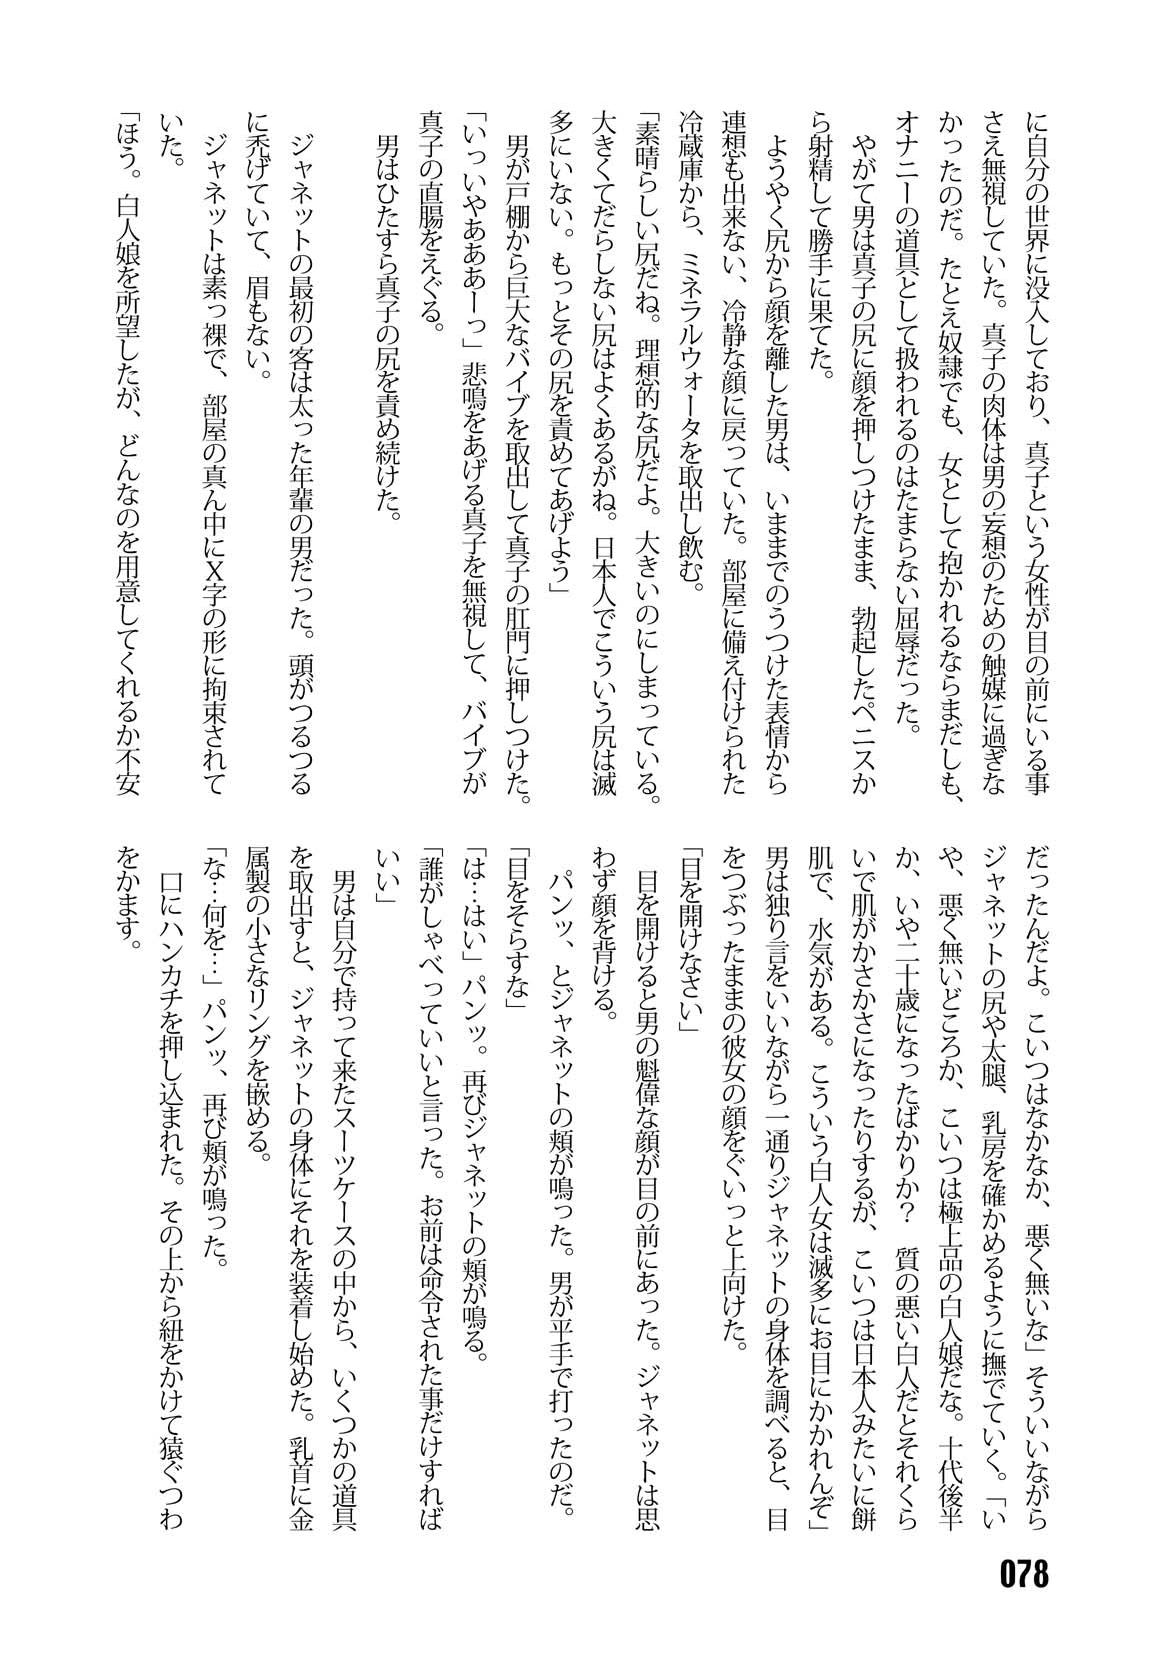 に自分の世界に没入しており、真子という女性が目の前にいる事
さえ無視していた。真子の肉体は男の妄想のための触媒に過ぎな
かったのだ。たとえ奴隷でも、女として抱かれるならまだしも、
オナニーの道具として扱われるのはたまらない屈辱だった。
やがて男は真子の尻に顔を押しつけたまま、勃起したペニスか
ら射精して勝手に果てた。
ようやく尻から顔を離した男は、いままでのうつけた表情から
連想も出来ない、冷静な顔に戻っていた。部屋に備え付けられた
冷蔵庫から、ミネラルウォータを取出し飲む。
「素晴らしい尻だね。理想的な尻だよ。大きいのにしまっている。
大きくてだらしない尻はよくあるがね。日本人でこういう尻は滅
多にいない。もっとその尻を責めてあげよう」
男が戸棚から巨大なバイブを取出して真子の肛門に押しつけた。
「いっいやあああーっ」悲鳴をあげる真子を無視して、バイブが
真子の直腸をえぐる。
男はひたすら真子の尻を責め続けた。
ジャネットの最初の客は太った年輩の男だった。頭がつるつる
に禿げていて、眉もない。
ジャネットは素っ裸で、部屋の真ん中にX字の形に拘束されて
いた。
「ほう。白人娘を所望したが、どんなのを用意してくれるか不安
だったんだよ。こいつはなかなか、悪く無いな」そういいながら
ジャネットの尻や太腿、乳房を確かめるように撫でていく。「い
や、悪く無いどころか、こいつは極上品の白人娘だな。十代後半
か、いや二十歳になったばかりか？　質の悪い白人だとそれくら
いで肌がかさかさになったりするが、こいつは日本人みたいに餅
肌で、水気がある。こういう白人女は滅多にお目にかかれんぞ」
男は独り言をいいながら一通りジャネットの身体を調べると、目
をつぶったままの彼女の顔をぐいっと上向けた。
「目を開けなさい」
目を開けると男の魁偉な顔が目の前にあった。ジャネットは思
わず顔を背ける。
パンッ、とジャネットの頬が鳴った。男が平手で打ったのだ。
「目をそらすな」
「は…はい」パンッ。再びジャネットの頬が鳴る。
「誰がしゃべっていいと言った。お前は命令された事だけすれば
いい」
男は自分で持って来たスーツケースの中から、いくつかの道具
を取出すと、ジャネットの身体にそれを装着し始めた。乳首に金
属製の小さなリングを嵌める。
「な…何を…」パンッ、再び頬が鳴った。
口にハンカチを押し込まれた。その上から紐をかけて猿ぐつわ
をかます。
078